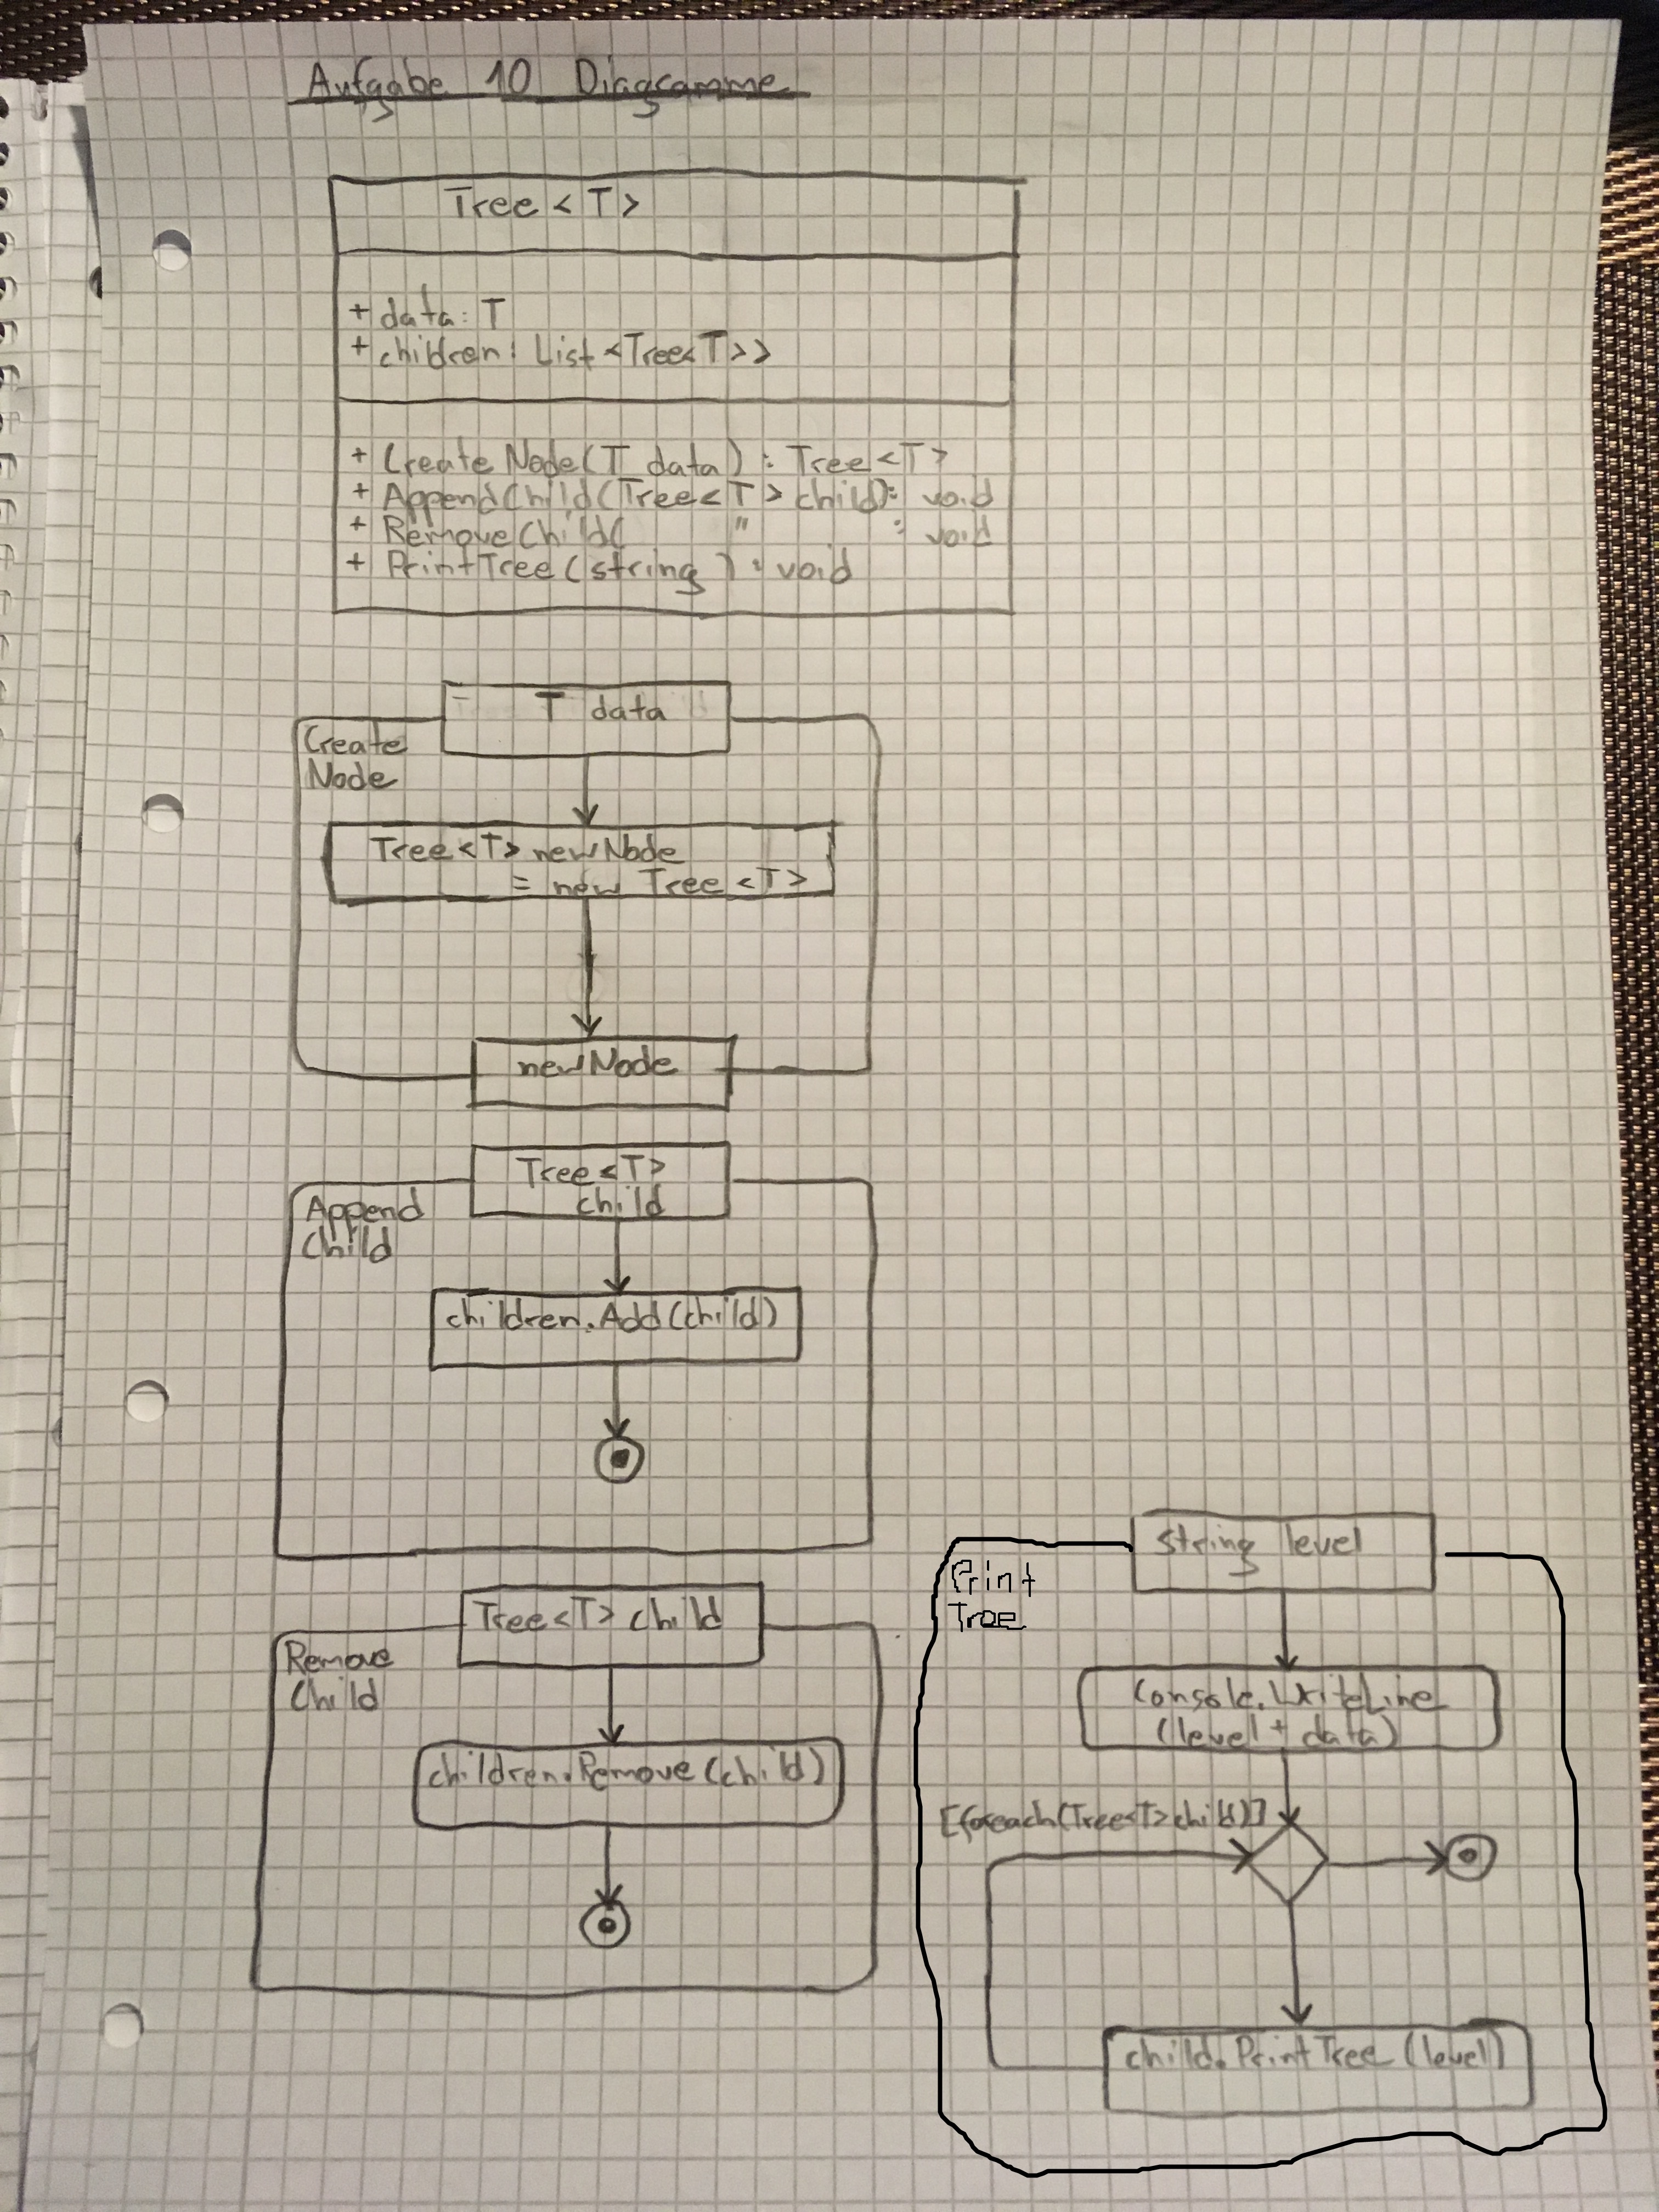 Aufgabe 10 Diagramme
Tree<T>
+ data: T
+ children: List<Tree<T>>
+ CreateNode(T data) : Tree<T>
+ AppendChild(Tree<T> child): void
+ RemoveChild( " : void
+ PrintTree(string ) : void
T data
Create
Node
Tree<T> newNode
= new Tree<T>
newNode
Tree<T>
child
Append
Child
children.Add(child)
Tree<T> child
Remove
Child
children.Remove(child)
string level
Print
Tree
Console.WriteLine
(level + data)
[foreach(Tree<T> child)]
child.PrintTree(level)